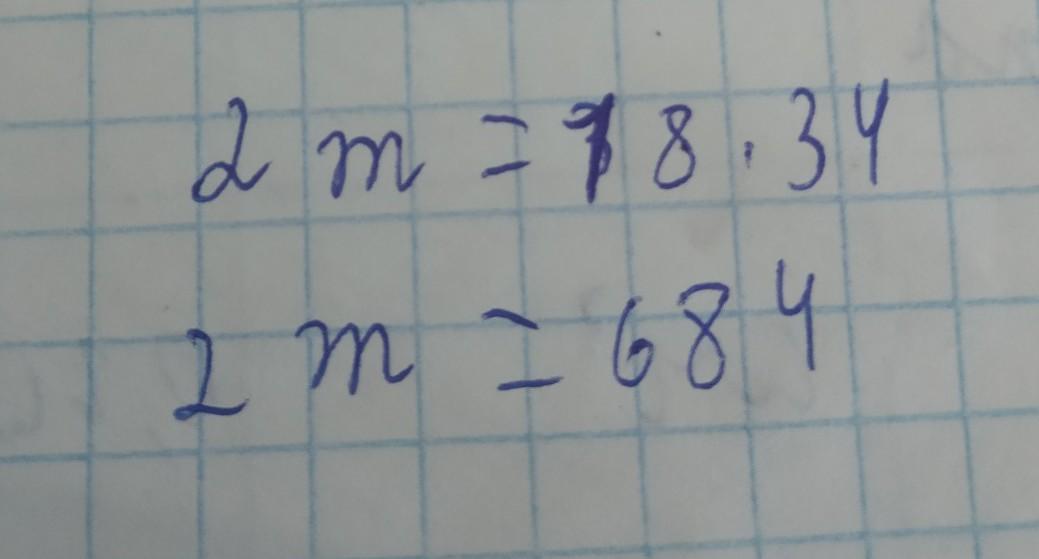 2 m = 18.34
2 m = 684